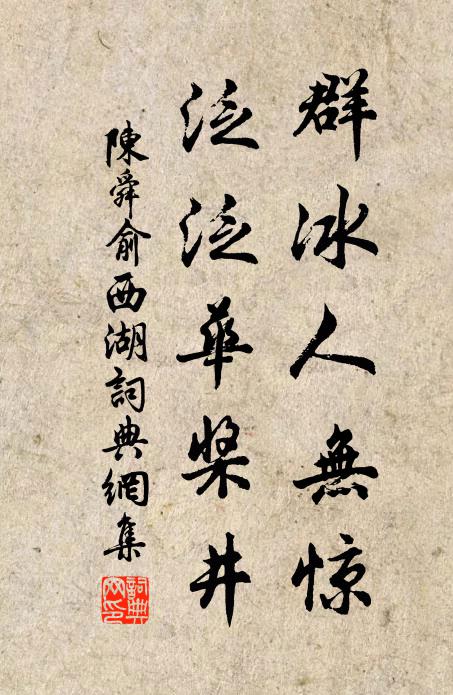 群冰人無惊
泛泛華槳井
陳舜俞西湖詞典網集
詞典網印